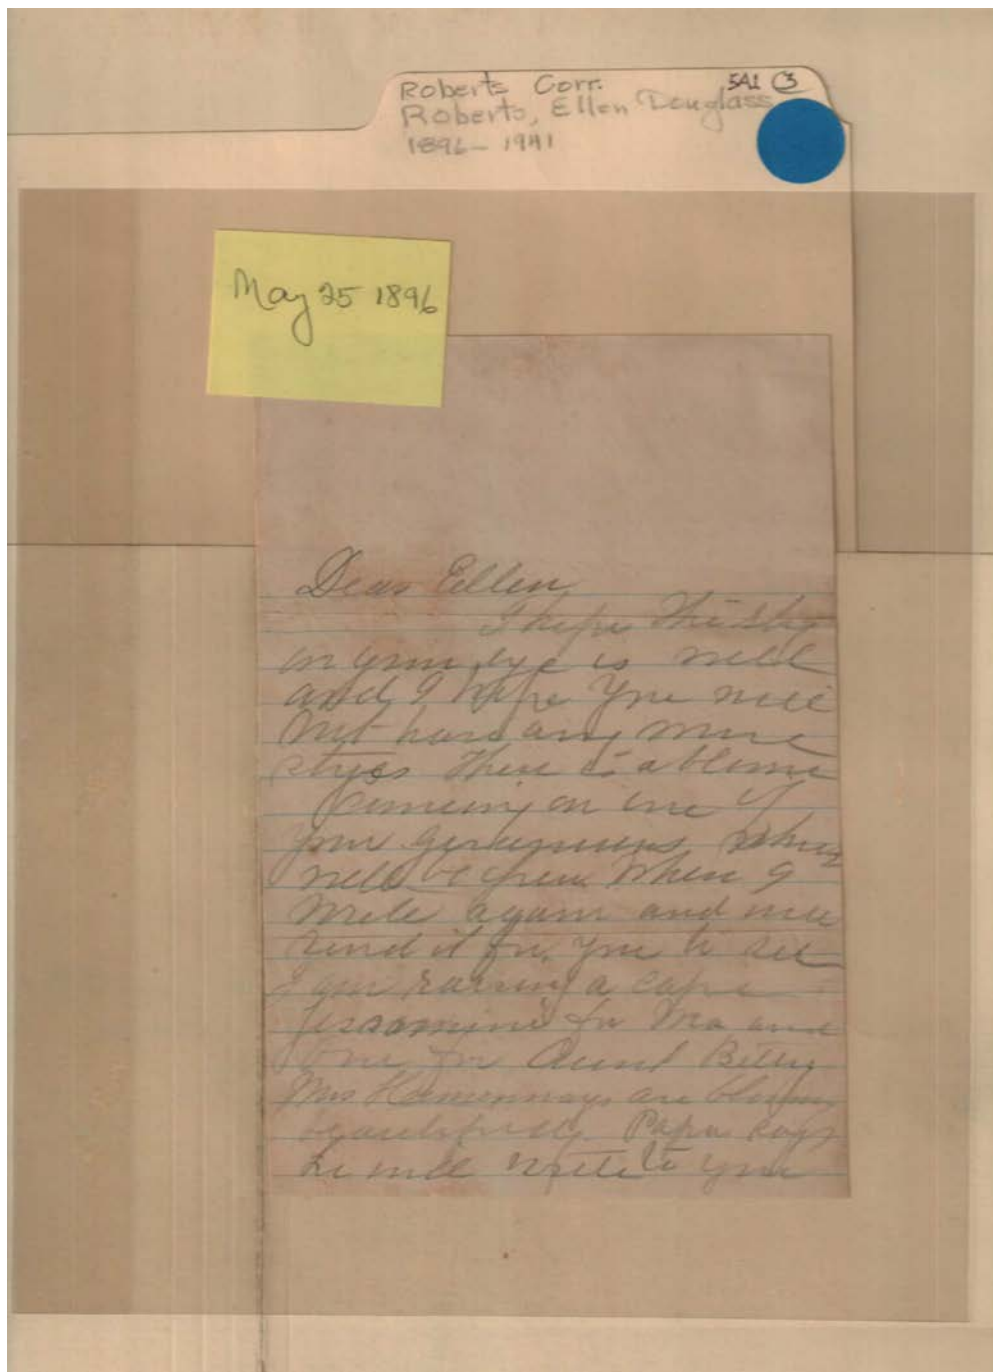 Roberts Corr. 5A1 3
Roberts, Ellen Douglass
1896-1941
May 25 1896
Dear Ellen,
I hope the sty
on your eye is well
and I hope you will
not have any more
styes There is a bloom
coming on one of
your geraniums, which
will be open when I
write again and will
send it for you to see
I am raising a cape
jessamine for Ma and
one for Aunt Betty
Mrs are blooming
beautifully. Papa says
he will write to you